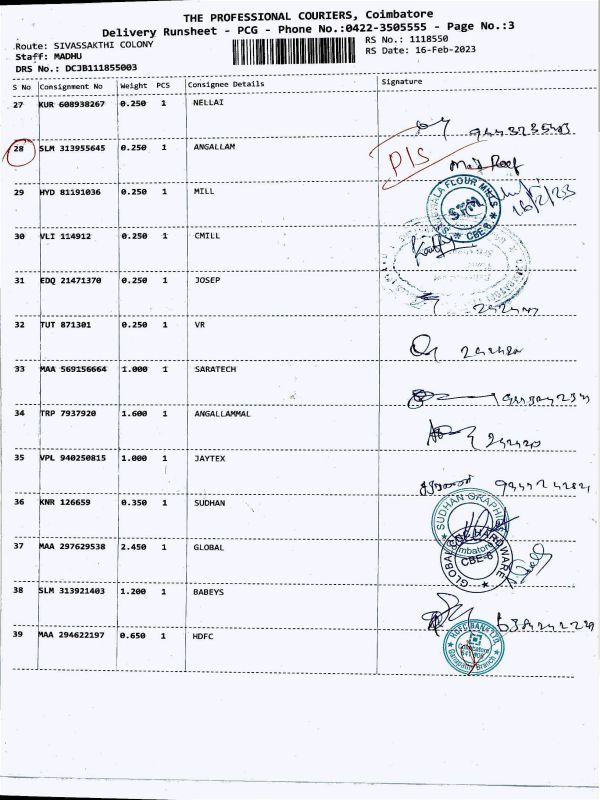 THE PROFESSIONAL COURIERS, Coimbatore
Delivery Runsheet - PCG - Phone No.:0422-3505555 - Page No.:3
Route: SIVASSAKTHI COLONY
Staff: MADHU
DRS No.: DCJB111855003
RS No.: 1118550
RS Date: 16-Feb-2023
S No Consignment No Weight PCS Consignee Details Signature
27 KUR 608938267 0.250 1 NELLAI
28 SLM 313955645 0.250 1 ANGALLAM P/S
29 HYD 81191036 0.250 1 MILL FLOUR MILLS STM CBE-6 16/2/23
30 VLI 114912 0.250 1 CMILL
31 EDQ 21471370 0.250 1 JOSEP
32 TUT 871301 0.250 1 VR
33 MAA 569156664 1.000 1 SARATECH
34 TRP 7937920 1.600 1 ANGALLAMMAL
35 VPL 940250815 1.000 1 JAYTEX
36 KNR 126659 0.350 1 SUDHAN SUDHAN GRAPHIC Coimbatore
37 MAA 297629538 2.450 1 GLOBAL GLOBAL HARDWARE CBE-6
38 SLM 313921403 1.200 1 BABEYS
39 MAA 294622197 0.650 1 HDFC HDFC BANK LTD. Coimbatore Ganapathy Branch